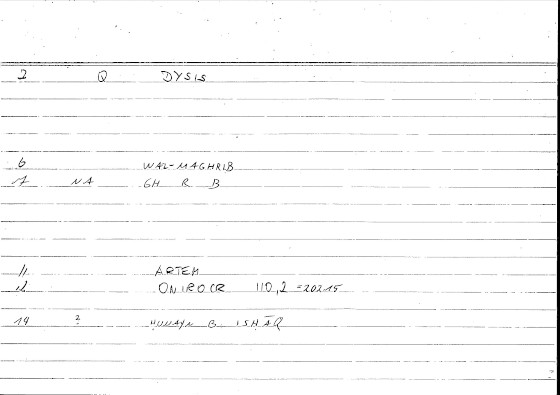 2 Q DYSIS
6 WAL-MAGHRIB
7 NA GH R B
11 ARTEM
12 ONIROCR 110,2 =20215
14 2 HUNAYN B ISḤĀQ